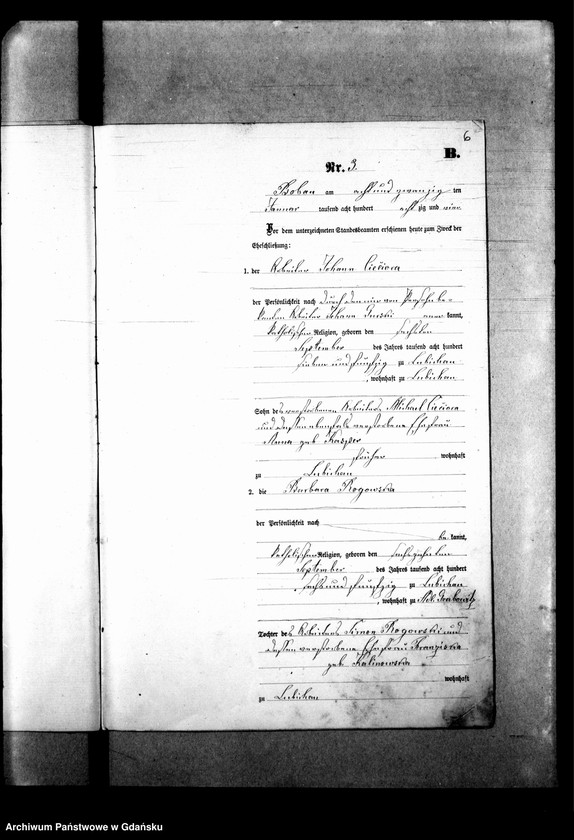 6
B.
Nr. 3.
Bobau am acht und zwanzig ten
Januar tausend acht hundert acht zig und
Vor dem unterzeichneten Standesbeamten erschienen heute zum Zweck der
Eheschließung:
1. der Arbeiter Johann Cieciora
der Persönlichkeit nach durch den von Person be-
kannten Arbeiter Johann kannt,
katholischer Religion, geboren den sechsten
September des Jahres tausend acht hundert
sieben und fünfzig zu Lubichau
, wohnhaft zu Lubichau
Sohn des verstorbenen Arbeiters Michael Cieciora
und dessen ebenfalls verstorbene Ehefrau
Anna geb Kasper
früher wohnhaft
zu Lubichau
2. die Barbara Rogowska
der Persönlichkeit nach
be kannt,
katholischer Religion, geboren den
September des Jahres tausend acht hundert
sechs und fünfzig zu Lubichau
, wohnhaft zu
Tochter des Arbeiters Simon Rogowski und
dessen verstorbene Ehefrau Franziska
geb Kalinowska
wohnhaft
zu Lubichau
Archiwum Państwowe w Gdańsku